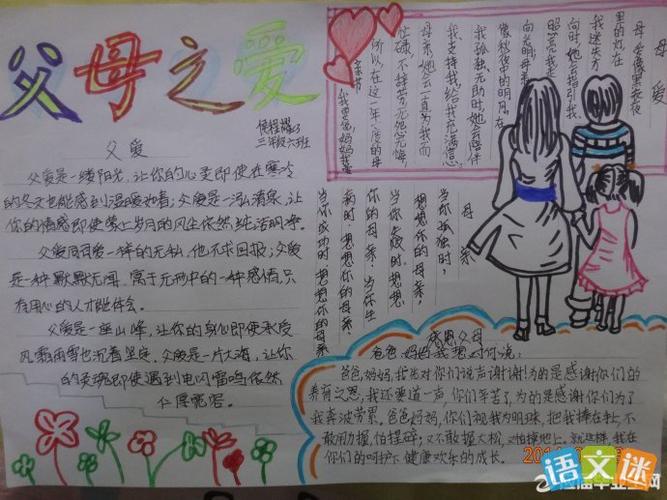 父母之爱
三年级六班
父爱
父爱是一缕阳光,让你的心灵即使在寒冷
的冬天也能感到温暖如春;父爱是一泓清泉,让
你的情感即使蒙上岁月的风尘依然纯洁明净。
父爱同母爱一样的无私,他不求回报;父爱
是一种默默无闻,寓于无形中的一种感情,只
有用心的人才能体会。
父爱是一座山峰,让你的身心即使承受
风霜雨雪也沉着坚定;父爱是一片大海,让你
的灵魂即使遇到电闪雷鸣依然
仁厚宽容。
母爱
母爱像黑夜
里的灯在
我迷失方
向时,她会指引我
向光明
像秋夜中的明月,在
我孤独无助时,她会陪伴
我,支持我,给我充满意
母亲她会一直为我而
任劳,不辞劳,无怨无悔,
所以,在这一年一度的母
亲节
母亲
当你孤独时,
想想你的母亲,
当你失败时,想想
你的母亲,当你生
病时,想想你的母亲,
当你成功时,想想你的母亲,
感恩父母
爸爸,妈妈我想对你们说:
爸爸,妈妈,我先对你们说声谢谢!为的是感谢你们的
养育之恩,我还要道一声,你们辛苦了,为的是感谢你们为了
我奔波劳累。爸爸妈妈,你们视我为明珠,把我捧在手上,不
敢用力握,怕捏碎;又不敢握太松,又怕摔地上。就这样,我在
你们的呵护下健康欢乐的成长。
语文迷